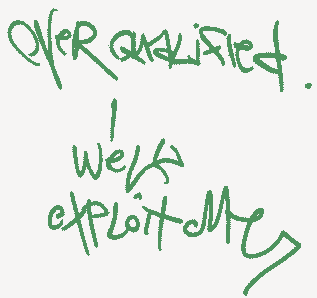 OveR QUALiFied.
exploit Me